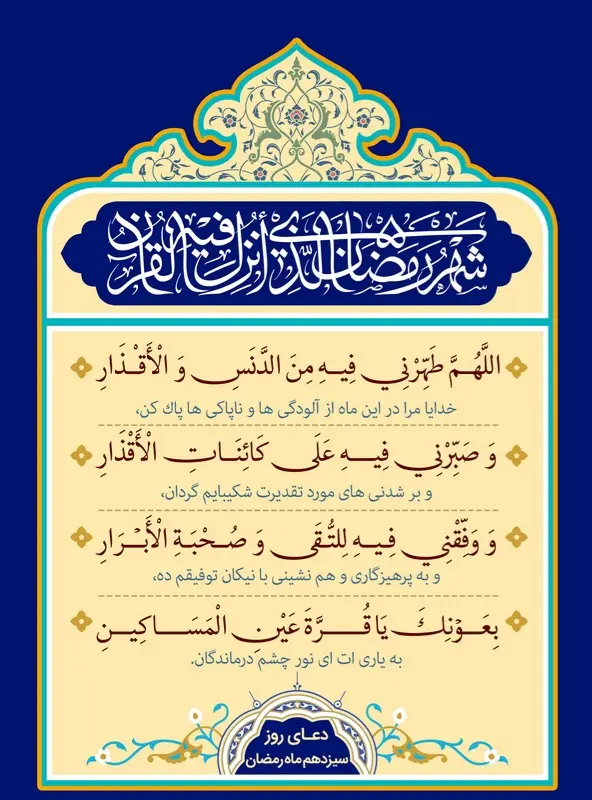 شَهْرُ رَمَضَانَ الَّذِي أُنْزِلَ فِيهِ الْقُرْآنُ
اللَّهُمَّ طَهِّرْنِي فِيهِ مِنَ الدَّنَسِ وَ الْأَقْذَارِ
خدایا مرا در این ماه از آلودگی ها و ناپاکی ها پاک کن،
وَ صَبِّرْنِي فِيهِ عَلَى كَائِنَاتِ الْأَقْذَارِ
و بر شدنی های مورد تقدیرت شکیبایم گردان،
وَ وَفِّقْنِي فِيهِ لِلتُّقَى وَ صُحْبَةِ الْأَبْرَارِ
و به پرهیزگاری و هم نشینی با نیکان توفیقم ده،
بِعَوْنِكَ يَا قُرَّةَ عَيْنِ الْمَسَاكِينِ
به یاری ات ای نور چشم درماندگان.
دعای روز
سیزدهم ماه رمضان